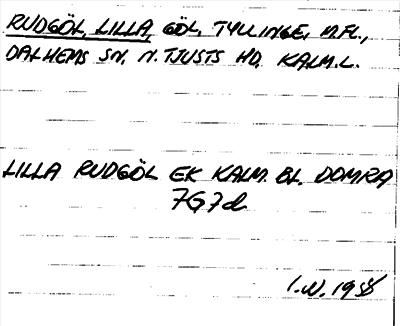 RUDGÖL, LILLA, GÖL, TYLLINGE, M.FL.,
DALHEMS SN. N. TJUSTS HD. KALM.L.
LILLA RUDGÖL EK KALM. BL. DOMRA
7G7d
I.W. 1958